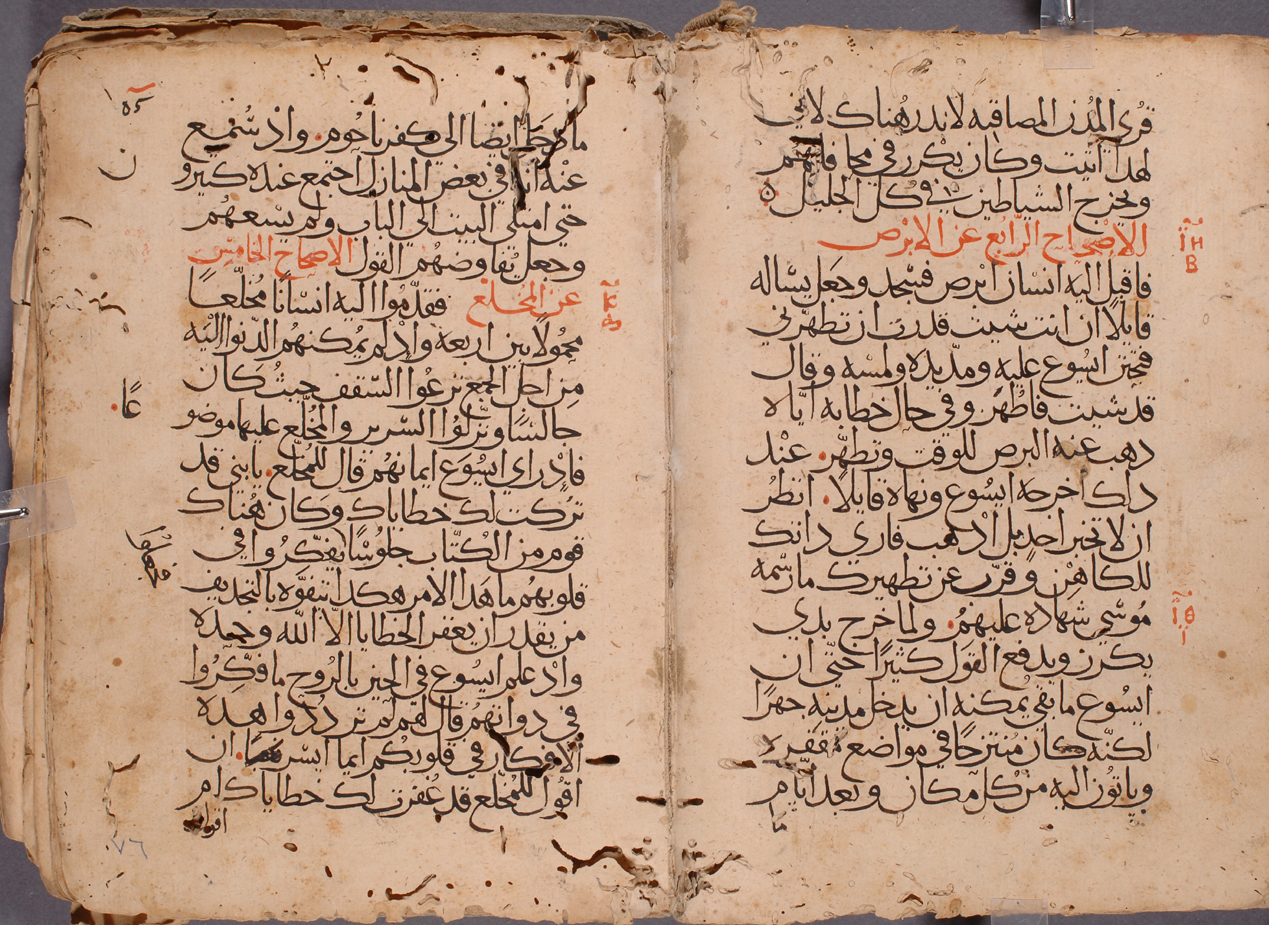 قرى المدن المصاقبه لابدر هناك لانى
لهدا اتيت وكان يكرز في محافلهم
ويخرج الشياطين في كل الجليل
الاصحاح الرابع عن الابرص
فاقبل اليه انسان ابرص فسجد وجعل يساله
قايلا ان انت شيت قدرت ان تطهرني
فتحنن ايسوع عليه ومد يده ولمسه وقال
قد شيت فاطهر وفي حال خطابه اياه
دهب عنه البرص للوقت وتطهر. عند
داك اخرجه ايسوع ونهاه قايلا. انظر
ان لا تخبر احد بل ادهب فاري داتك
للكاهن وقرب عن تطهيرك ما رسمه
موسى شهاده عليهم. ولما خرج بدي
يكرز ويدفع القول كثيرا حتى ان
ايسوع ما بقي يمكنه ان يدخل مدينه جهرا
لكنه كان منتزحا في مواضع مقفره
وياتون اليه من كل مكان وبعد ايام
ما
دخل ايضا الى كفرناحوم. واذ سمع
عنه انه في بعض المنازل اجتمع عنده كثيرو
ن
حتى امتلى البيت الي الباب ولم يسعهم
وجعل يفاوضهم القول الاصحاح الخامس
عن المخلع فقدموا اليه انسانا مخلعا
محمولا بين اربعه واذ لم يمكنهم الدنوا اليه
من اجل الجمع نزعوا السقف حيث كان
جالسا ونزلوا السرير والمخلع عليها موضو
عا.
فاذ راى ايسوع ايمانهم قال للمخلع. يابني قد
تركت لك خطاياك وكان هناك
قوم من الكتاب جلوسا يفكروا في
قلوبهم ما هدا الامر هكدا تتفوه بالتجديف
من يقدر ان يغفر الخطايا الا الله وحده
واذ علم ايسوع في الحين بالروح ما فكروا
في دواتهم قال لهم لم ترددوا هده
الافكار في قلوبكم ايما ايسر. ان
اقول للمخلع قد غفرت لك خطاياك ام
اقول
٧٦